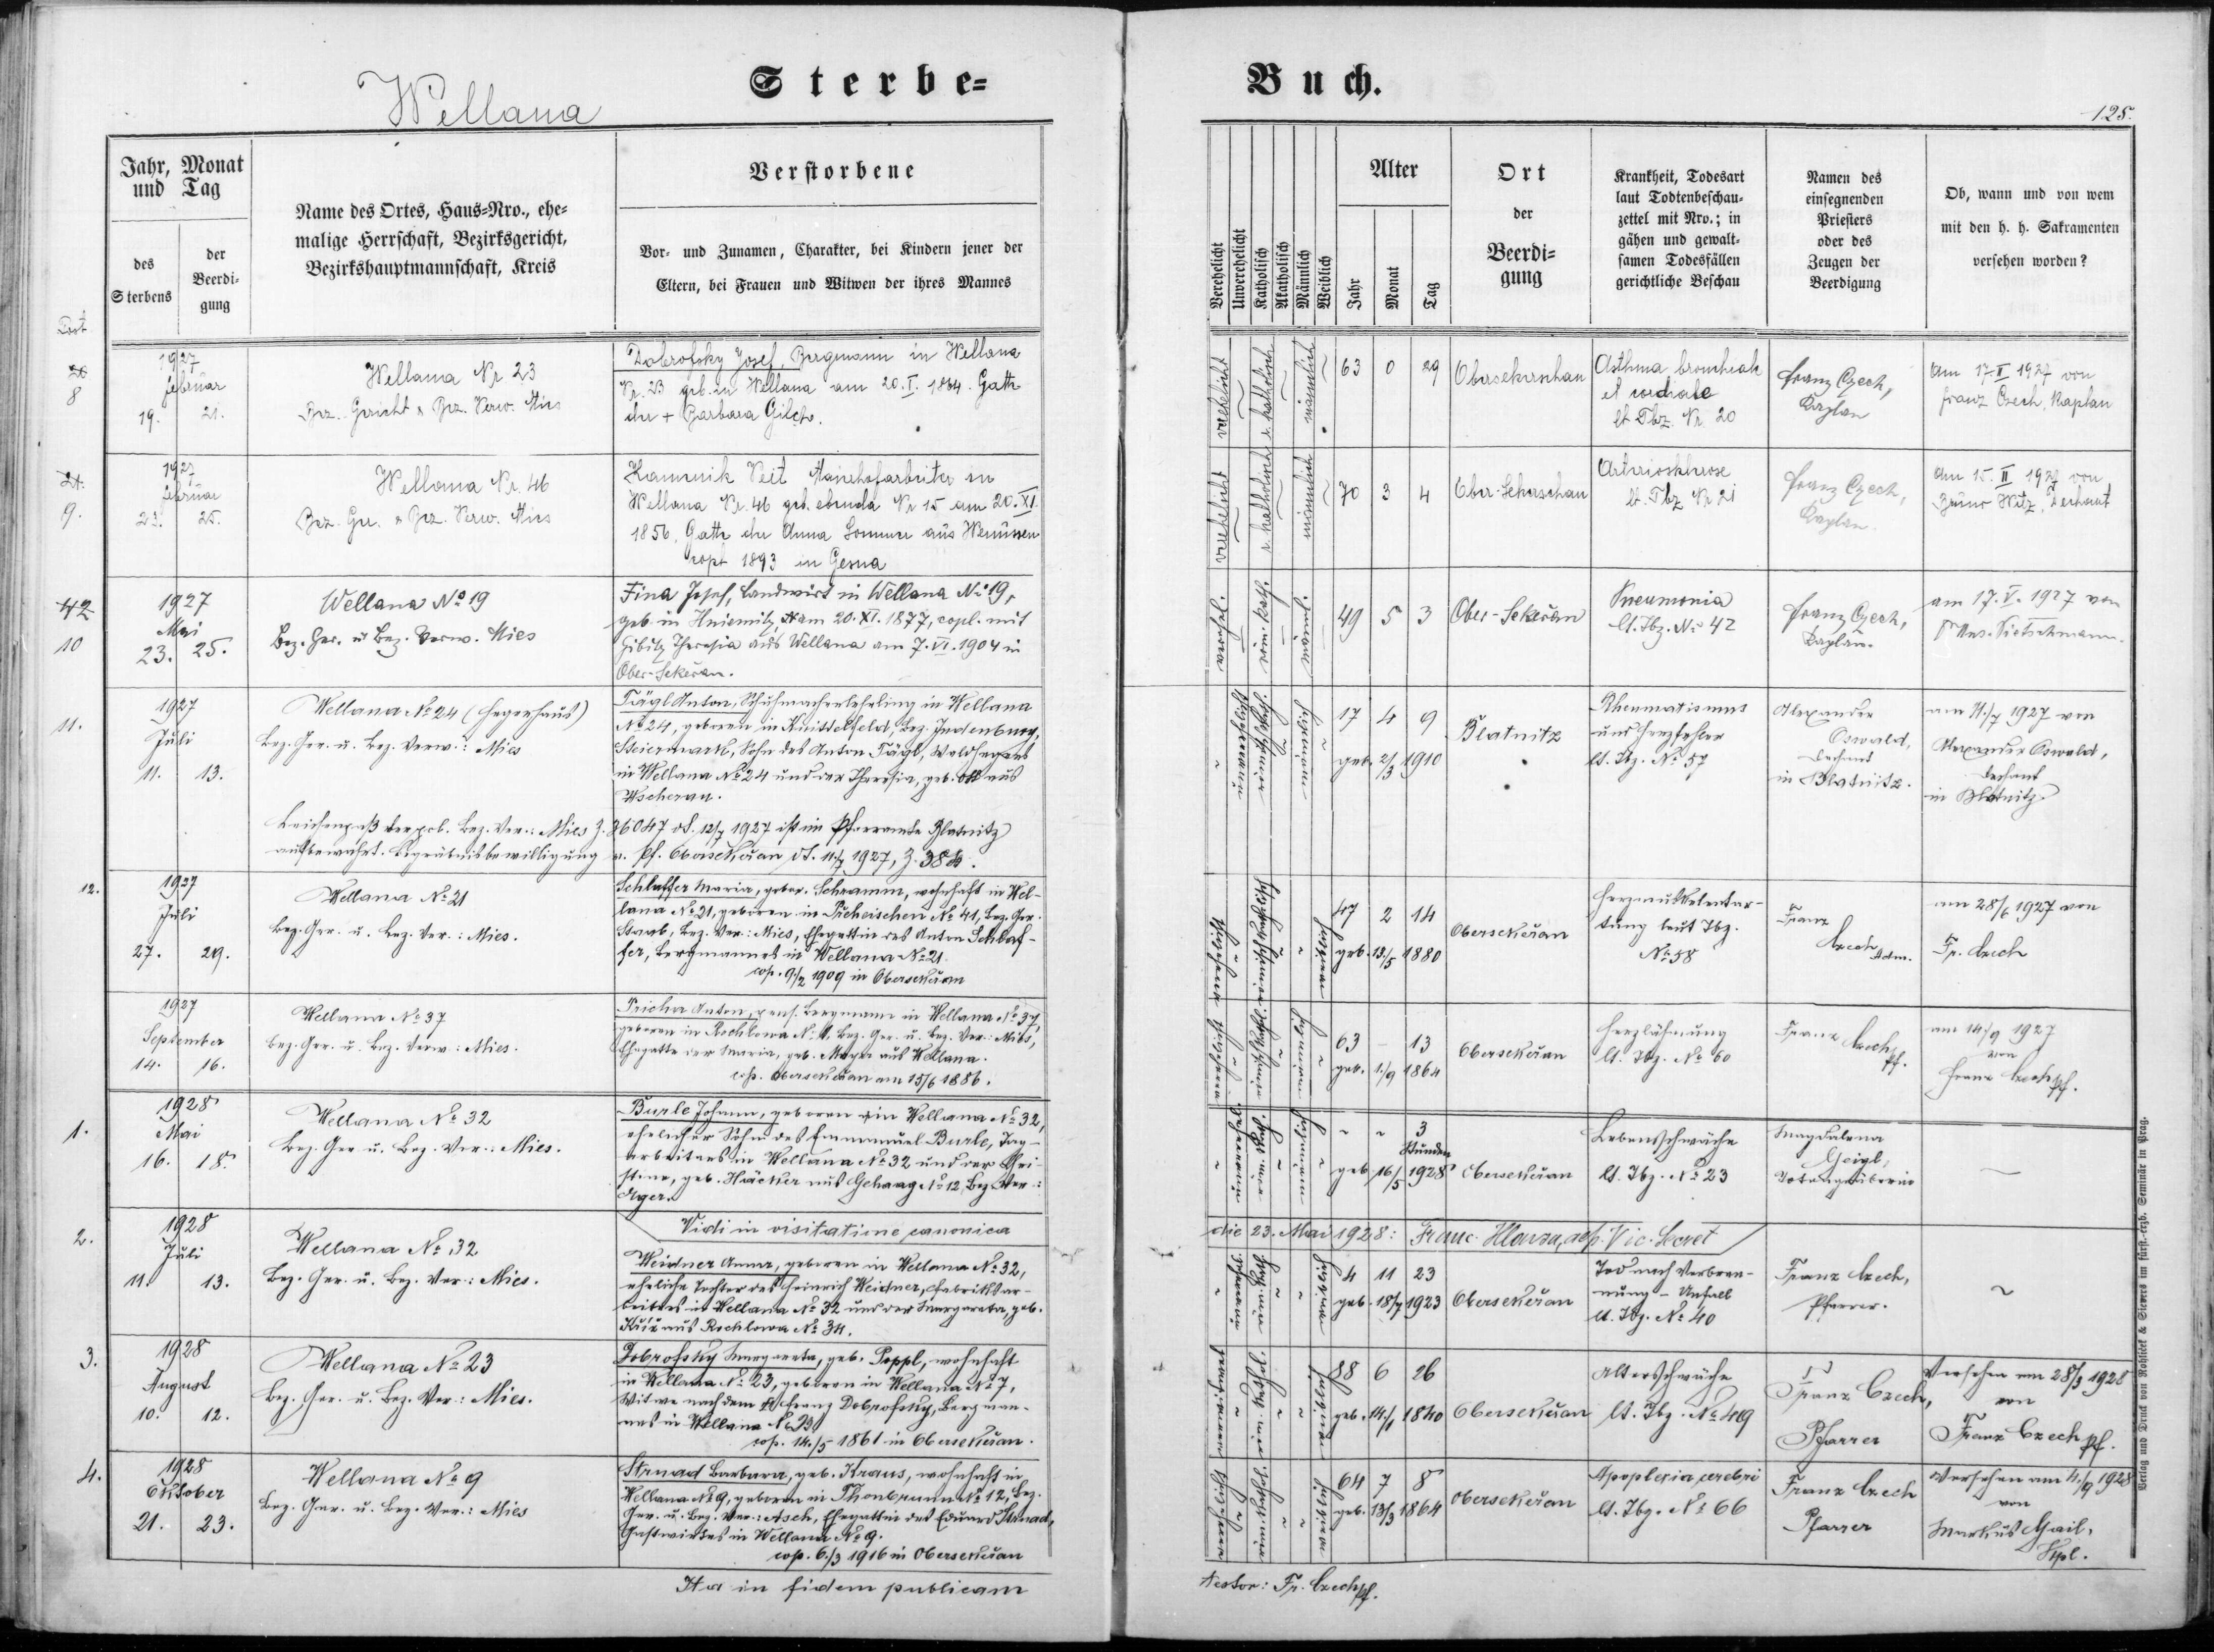 Wellana
Sterbe-
Buch.
125.
Jahr, Monat
und Tag
des
Sterbens
der
Beerdi-
gung
Name des Ortes, Haus-Nro., ehe-
malige Herrschaft, Bezirksgericht,
Bezirkshauptmannschaft, Kreis
Verstorbene
Vor- und Zunamen, Charakter, bei Kindern jener der
Eltern, bei Frauen und Witwen der ihres Mannes
Verehelicht
Unverehelicht
Katholisch
Akatholisch
Männlich
Weiblich
Alter
Jahr
Monat
Tag
Ort
der
Beerdi-
gung
Krankheit, Todesart
laut Todtenbeschau-
zettel mit Nro.; in
gähen und gewalt-
samen Todesfällen
gerichtliche Beschau
Namen des
einsegnenden
Priesters
oder des
Zeugen der
Beerdigung
Ob, wann und von wem
mit den h. h. Sakramenten
versehen worden?
20
8
1927
Februar
19. 21.
Wellana Nr 23
Bez. Gericht u Bez. Verw. Mies
Dobrofsky Josef, Bergmann in Wellana
Nr. 23 geb. in Wellana am 20. I. 1864. Gatte
der + Barbara Gilch.
verehelicht
r. katholisch
männlich
63 0 29
Obersekerschan
Asthma bronchiale
et cordiale
lt Tbz. Nr. 20
Franz Czech,
Kaplan
Am 17. II 1927 von
Franz Czech, Kaplan
21.
9.
1927
Februar
23. 25.
Wellana Nr. 46
Bez. Ger. u Bez. Verw. Mies
Kamenik Veit Mairhofarbeiter in
Wellana Nr. 46 geb. ebenda Nr 15 am 20. XI.
1856. Gatte der Anna Sommer aus Wenüssen
copt 1893 in Gesna
verehelicht
r. katholisch
männlich
70 3 4
Ober-Sekerschan
Arteriosklerose
lt. Tbz Nr 21
Franz Czech,
Kaplan.
Am 15. II 1927 von
Bruno Witz, Dechant
42
10
1927
Mai
23. 25.
Wellana No 19
Bez. Ger. u Bez. Verw. Mies
Fina Josef, Landwirt in Wellana No 19,
geb. in Hniemitz, am 20. XI. 1877, copl. mit
Gibitz Theresia aus Wellana am 7. VI. 1904 in
Ober-Sekeřan.
49 5 3
Ober-Sekeřan
Pneumonia
lt. Tbz. No 42
Franz Czech,
Kaplan.
am 17. V. 1927 von
P. Ans. Pietschmann.
11.
1927
Juli
11. 13.
Wellana No 24 (Hegerhaus)
Bez. Ger. u. Bez. Verw.: Mies
Tägl Anton, Schuhmacherlehrling in Wellana
No 24, geboren in Knittelfeld, Bez. Judenburg,
Steiermark, Sohn des Anton Tägl, Waldhegers
in Wellana No 24 und der Theresia, geb. Ott aus
Wscherau.
Leichenpaß der pol. Bez. Ver.: Mies Z. 36047 dt. 12/7 1927 ist im Pfarramte Blatnitz
aufbewahrt. Begräbnisbewilligung v. Pf. Obersekeřan dt. 11/7 1927, Z. 384.
17 4 9
geb. 2/3 1910
Blatnitz
Rheumatismus
und Herzfehler
lt. Tbz. No 57
Alexander
Oswald,
Dechant
in Blatnitz.
am 11./7 1927 von
Alexander Oswald,
Dechant
in Blatnitz.
12.
1927
Juli
27. 29.
Wellana No 21
Bez. Ger. u. Bez. Ver.: Mies.
Schlaffer Maria, gebor. Schramm, wohnhaft in Wel-
lana No 21, geboren in Pscheischen No 41, Bez. Ger.
Staab, Bez. Ver.: Mies, Ehegattin des Anton Schlaf-
fer, Bergmannes in Wellana No 21.
cop. 9./2 1909 in Obersekeřan
47 2 14
geb. 13/5 1880
Obersekeřan
Herzmuskelentar-
tung laut Tbz.
No 58
Franz
Czech Adm.
am 28/6 1927 von
Fr. Czech
1927
September
14. 16.
Wellana No 37
Bez. Ger. u. Bez. Verw.: Mies.
Pricha Anton, pens. Bergmann in Wellana No 37,
geboren in Rochlowa No, Bez. Ger. u. Bez. Ver.: Mies,
Ehegatte der Maria, geb. Mayer aus Wellana.
cop. Obersekeřan am 15/6 1886.
63 - 13
geb. 1./9 1864
Obersekeřan
Herzlähmung
lt. Tbz. No 60
Franz Czech
Pf.
am 14./9 1927
von
Franz Czech Pf.
1.
1928
Mai
16. 18.
Wellana No 32
Bez. Ger u. Bez. Ver.: Mies.
Burle Johann, geboren in Wellana No 32,
ehelicher Sohn des Emmanuel Burle, Tag-
arbeiters in Wellana No 32 und der Chri-
stine, geb. Häcker aus Gehaag No 12, Bez. Ver.:
Eger.
3
Stunden
geb. 16/5 1928
Obersekeřan
Lebensschwäche
lt. Tbz. No 23
Magdalena
Geigl,
Totengräberin
Vidi in visitatione canonica
die 23. Mai 1928: Franc. Hlouza, aep. Vic. Secret
2.
1928
Juli
11. 13.
Wellana No 32
Bez. Ger. u. Bez. Ver.: Mies.
Weidner Anna, geboren in Wellana No 32,
eheliche Tochter des Heinrich Weidner, Fabriksar-
beiters in Wellana No 32 und der Margareta, geb.
aus Rochlowa No 34.
4 11 23
geb. 18/7 1923
Obersekeřan
Tod nach Verbren-
nung - Unfall
lt. Tbz. No 40
Franz Czech,
Pfarrer.
3.
1928
August
10. 12.
Wellana No 23
Bez. Ger. u. Bez. Ver.: Mies.
Dobrofsky Margareta, geb. Poppl, wohnhaft
in Wellana No 23, geboren in Wellana No 7,
Witwe nach dem + Franz Dobrofsky, Bergman-
nes in Wellana No 23
cop. 14./5 1861 in Obersekeřan.
88 6 26
geb. 14./1 1840
Obersekeřan
Altersschwäche
lt. Tbz. No 49
Franz Czech,
Pfarrer
Versehen am 28/3 1928
von
Franz Czech Pf.
4.
1928
Oktober
21. 23.
Wellana No 9
Bez. Ger. u. Bez. Ver.: Mies
Strnad Barbara, geb. Kraus, wohnhaft in
Wellana No 9, geboren in Thonbrunn No 12, Bez.
Ger. u. Bez. Ver.: Asch, Ehegattin des Eduard Strnad,
Gastwirtes in Wellana No 9.
cop. 6./3 1916 in Obersekeřan
64 7 8
geb. 13/3 1864
Obersekeřan
Apoplexia cerebri
lt. Tbz. No 66
Franz Czech
Pfarrer
Versehen am 4./9 1928
von
Markus Gail,
Kpl.
Ita in fidem publicam
testor: Fr. Czech Pf.
Verlag und Druck von Rohlíček & Sievers im fürst.-erzb. Seminár in Prag.